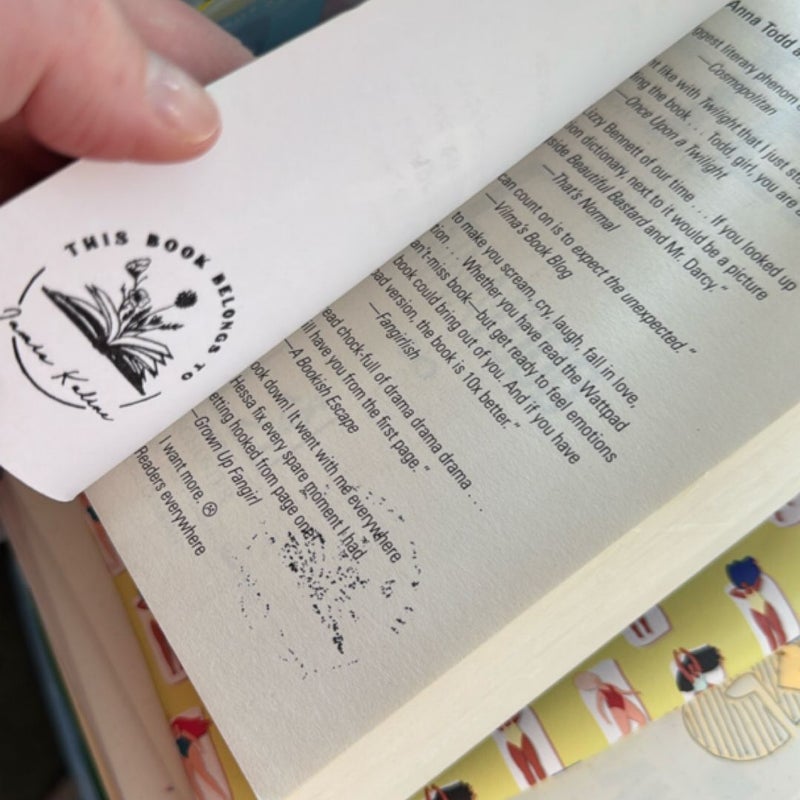 THIS BOOK BELONGS TO
Jamie Kaline
Anna Todd a
ggest literary phenom
—Cosmopolitan
t like with Twilight that I just
ing the book . . . Todd, girl, you are
—Once Upon a Twilight
izzy Bennett of our time . . . If you looked up
ion dictionary, next to it would be a picture
side Beautiful Bastard and Mr. Darcy."
—That's Normal
can count on is to expect the unexpected."
—Vilma's Book Blog
to make you scream, cry, laugh, fall in love,
tion. . . . Whether you have read the Wattpad
an't-miss book—but get ready to feel emotions
book could bring out of you. And if you have
ad version, the book is 10x better."
—Fangirlish
ead chock-full of drama drama drama . . .
ill have you from the first page."
—A Bookish Escape
ook down! It went with me everywhere
Hessa fix every spare moment I had
etting hooked from page one!"
—Grown Up Fangirl
I want more. ☹
Readers everywhere